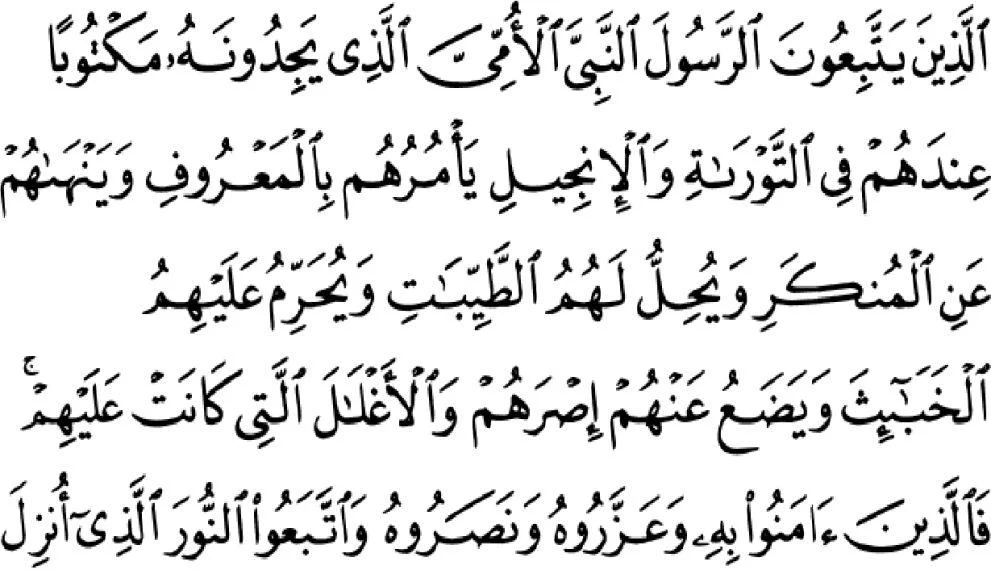 ٱلَّذِينَ يَتَّبِعُونَ ٱلرَّسُولَ ٱلنَّبِىَّ ٱلْأُمِّىَّ ٱلَّذِى يَجِدُونَهُۥ مَكْتُوبًا
عِندَهُمْ فِى ٱلتَّوْرَىٰةِ وَٱلْإِنجِيلِ يَأْمُرُهُم بِٱلْمَعْرُوفِ وَيَنْهَىٰهُمْ
عَنِ ٱلْمُنكَرِ وَيُحِلُّ لَهُمُ ٱلطَّيِّبَـٰتِ وَيُحَرِّمُ عَلَيْهِمُ
ٱلْخَبَـٰٓئِثَ وَيَضَعُ عَنْهُمْ إِصْرَهُمْ وَٱلْأَغْلَـٰلَ ٱلَّتِى كَانَتْ عَلَيْهِمْ ۚ
فَٱلَّذِينَ ءَامَنُوا۟ بِهِۦ وَعَزَّرُوهُ وَنَصَرُوهُ وَٱتَّبَعُوا۟ ٱلنُّورَ ٱلَّذِىٓ أُنزِلَ